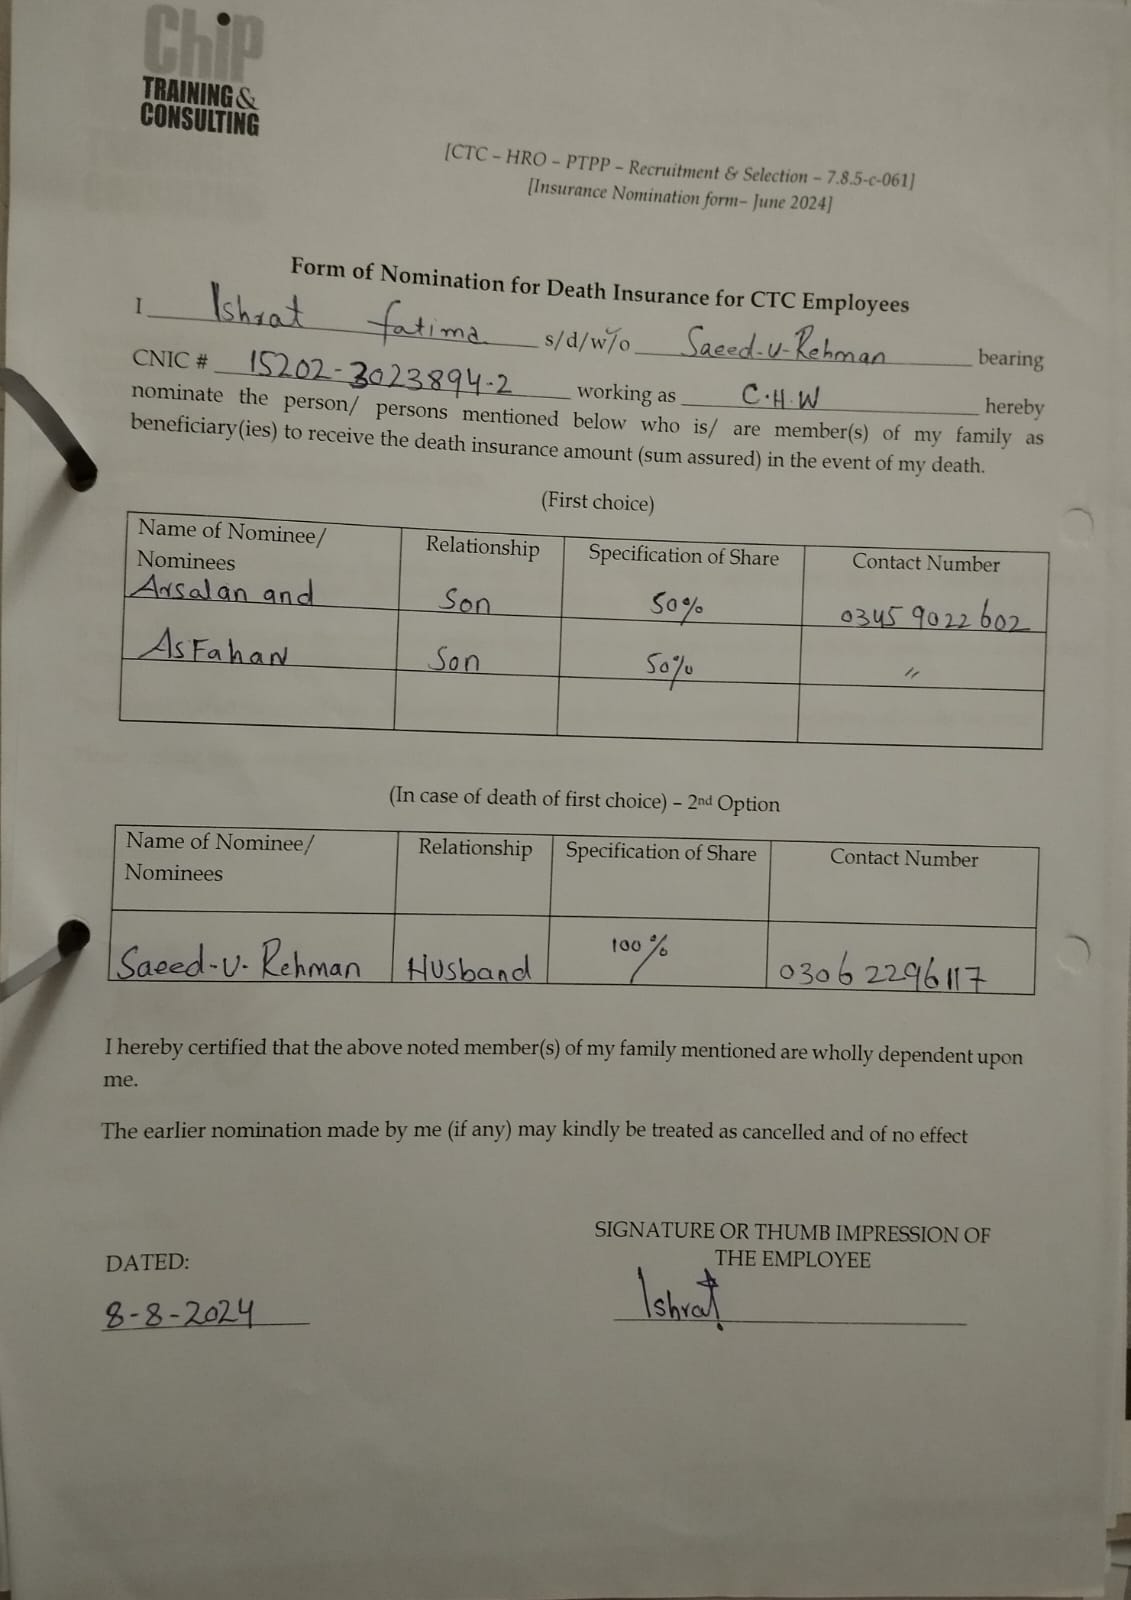 Chip
TRAINING &
CONSULTING
[CTC – HRO – PTPP – Recruitment & Selection – 7.8.5-c-061]
[Insurance Nomination form– June 2024]
Form of Nomination for Death Insurance for CTC Employees
I Ishrat fatima s/d/w/o Saeed-U-Rehman bearing
CNIC # 15202-3023894-2 working as C.H.W hereby
nominate the person/ persons mentioned below who is/ are member(s) of my family as
beneficiary(ies) to receive the death insurance amount (sum assured) in the event of my death.
(First choice)
Name of Nominee/ Nominees Relationship Specification of Share Contact Number
Arsalan and Son 50% 0345 9022602
AsFahan Son 50% "
(In case of death of first choice) – 2nd Option
Name of Nominee/ Nominees Relationship Specification of Share Contact Number
Saeed-U-Rehman Husband 100% 0306 2296117
I hereby certified that the above noted member(s) of my family mentioned are wholly dependent upon
me.
The earlier nomination made by me (if any) may kindly be treated as cancelled and of no effect
SIGNATURE OR THUMB IMPRESSION OF
THE EMPLOYEE
DATED:
8-8-2024
Ishrat